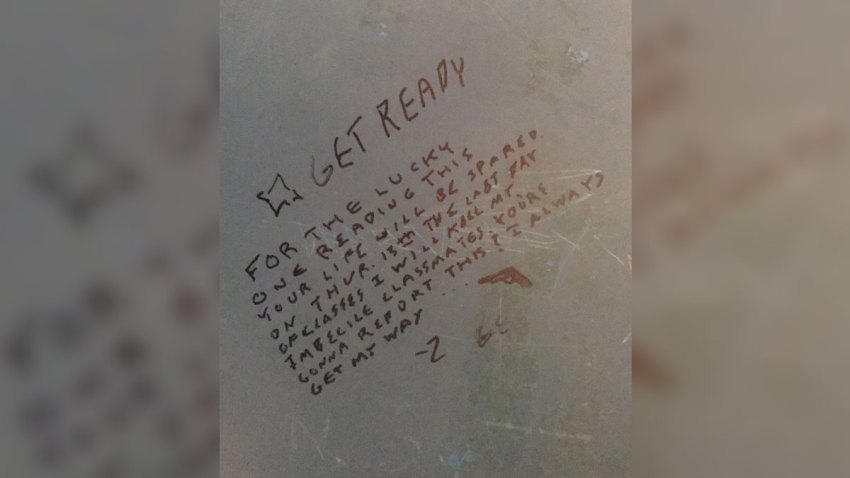 GET READY
FOR THE LUCKY
ONE READING THIS
YOUR LIFE WILL BE SPARED.
ON THUR. 13TH THE LAST DAY
OFCLASSES I WILL KILL MY
IMBECILE CLASSMATES. YOURE
GONNA REPORT THIS? I ALWAYS
GET MY WAY...
-Z